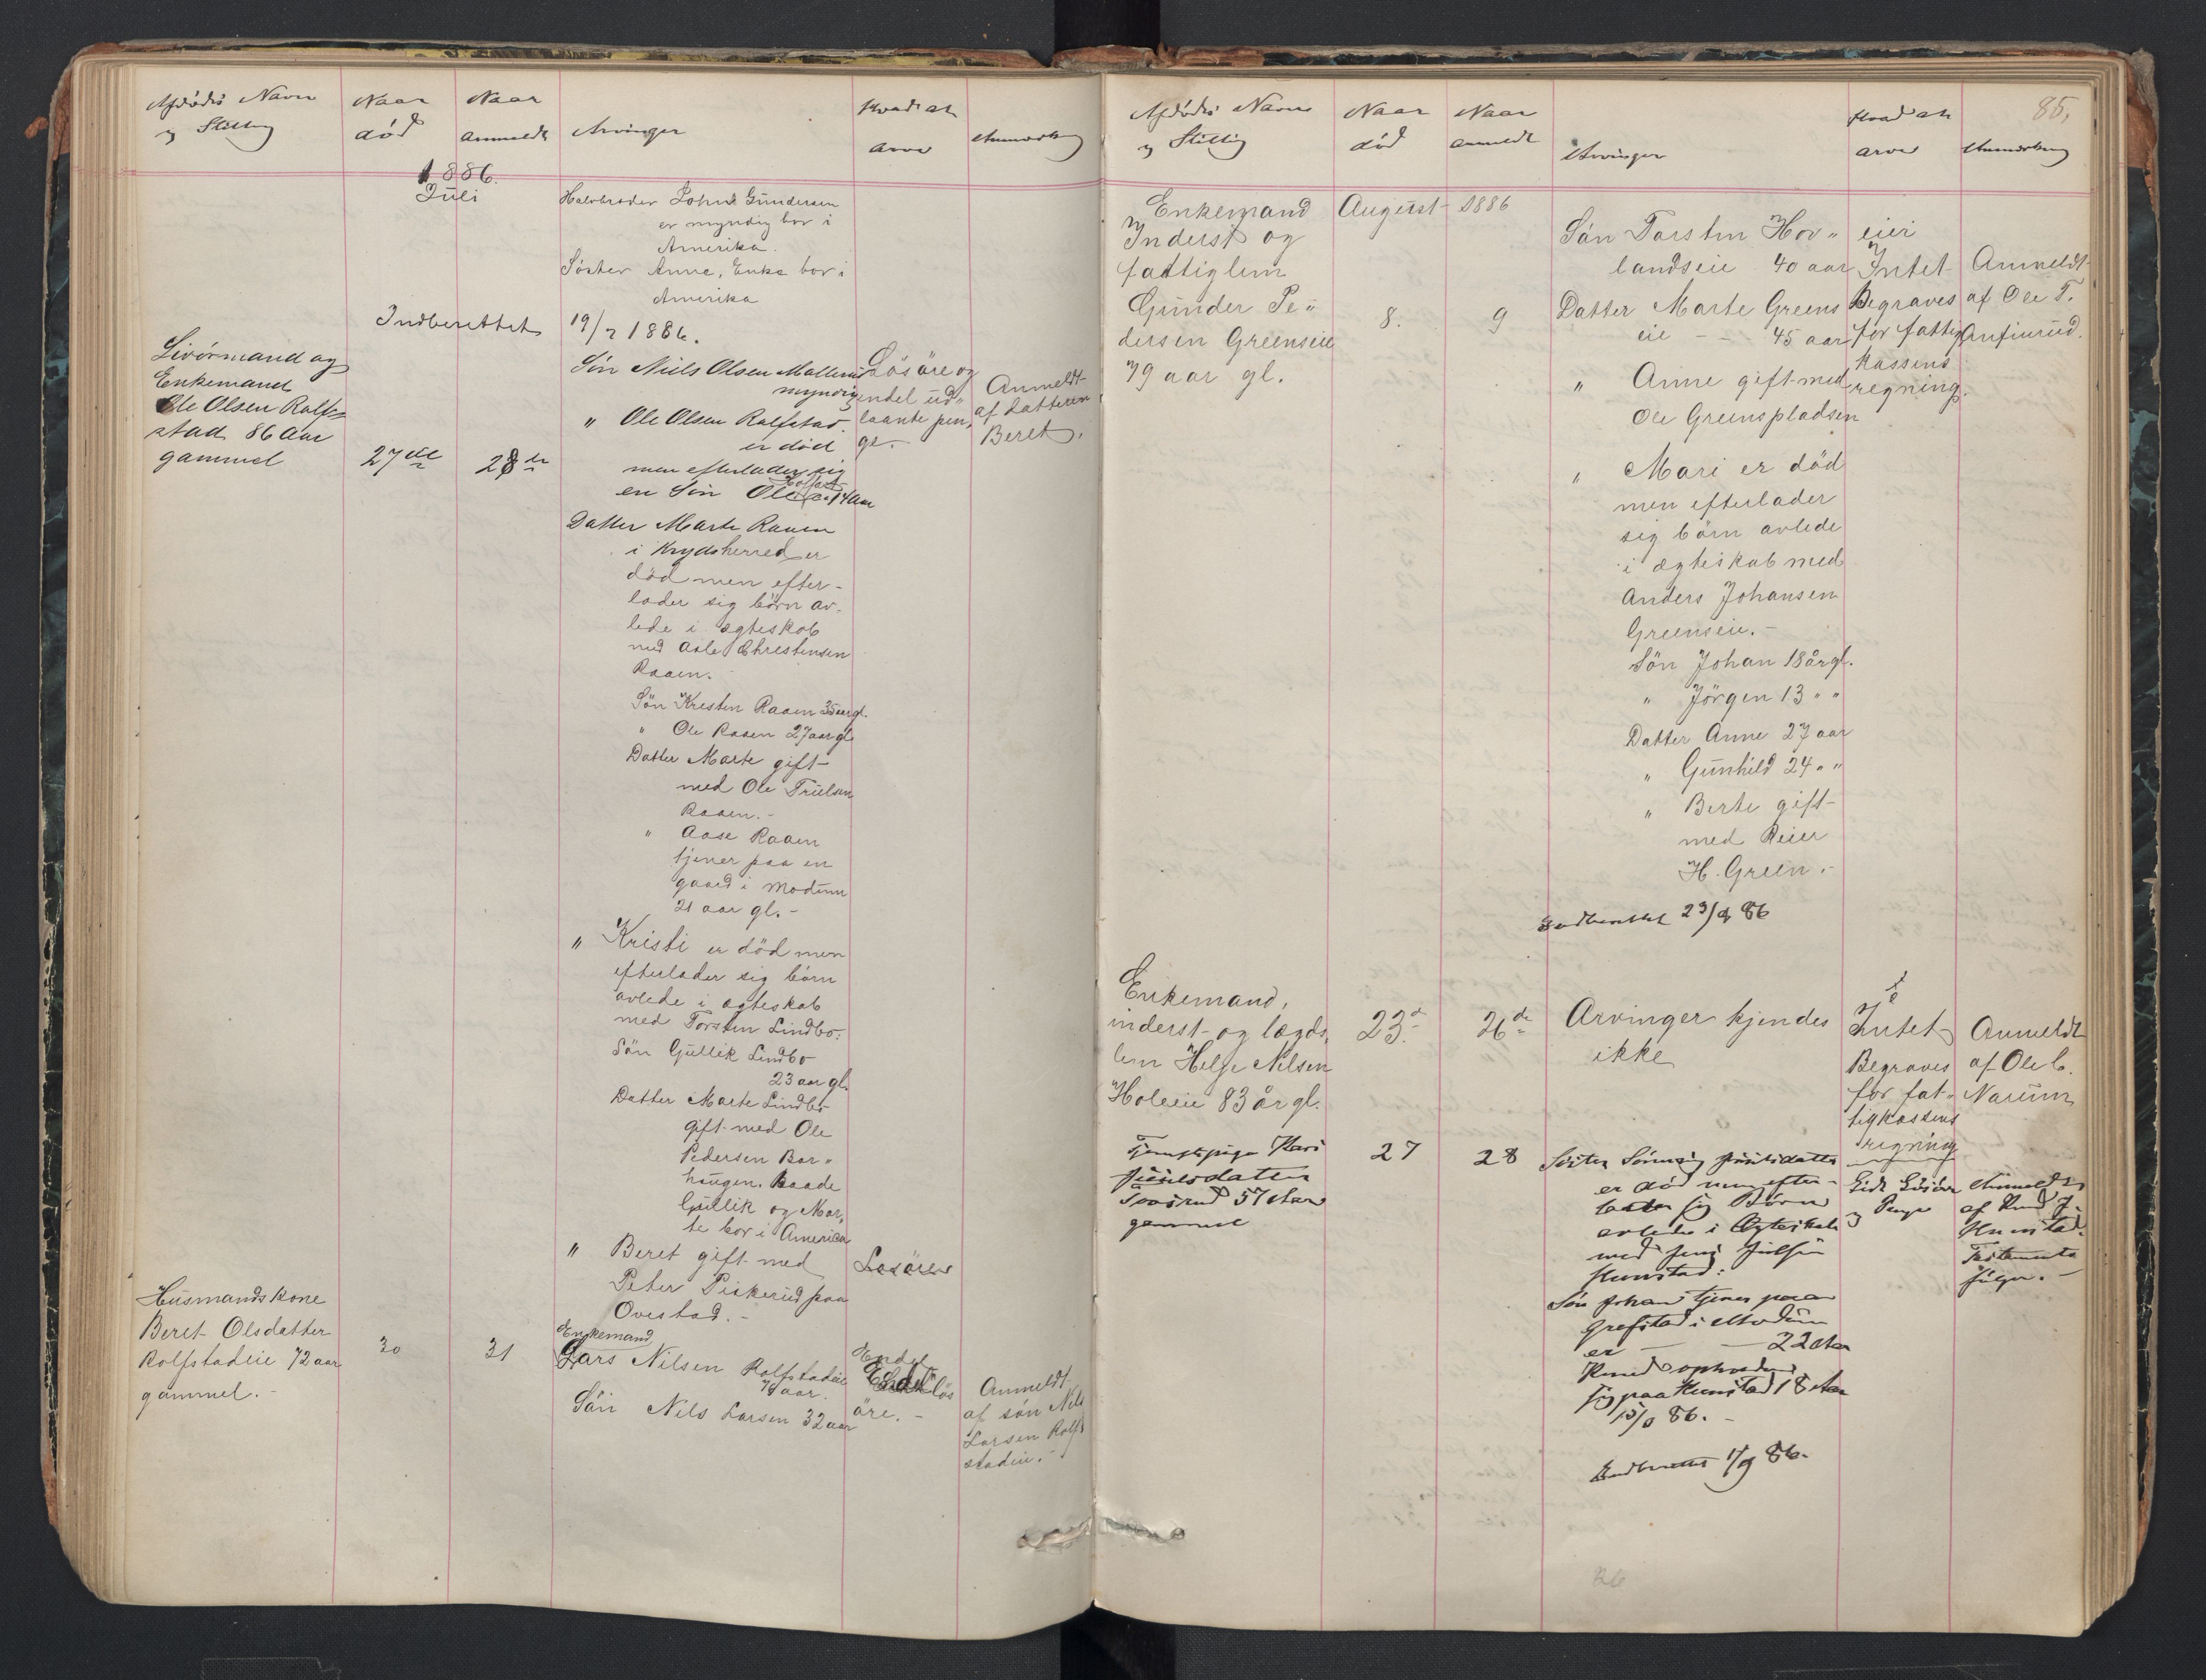 Afdødes Navn
og Stilling
Naar
død
Naar
anmeldt
Arvinger
Hvad at
arve
Anmærkning
1886.
Juli
Halvbroder John Gundersen
er myndig bor i
Amerika.
Søster Anne, Enke bor i
Amerika
Indberettet 19/7 1886.
Livørmand og
Enkemand
Ole Olsen Rolf-
stad 86 Aar
gammel
27de
28de
Søn Niels Olsen Mallerud
myndig
" Ole Olsen Rolfstad
er død
men efterlader sig
en Søn Ole 14 Aar
Datter Marte Raaen
i Krydsherred er
död men efter-
lader sig börn av-
lede i ægteskab
med Asle Christensen
Raaen.
Sön Kresten Raaen 35 aar gl.
" Ole Raaen 27 aar gl.
Datter Marte gift
med Ole Truelsen
Raaen.-
" Aase Raaen
tjener paa en
gaard i Modum
21 aar gl.-
" Kristi er död men
efterlader sig börn
avlede i ægteskab
med Torsten Lindbo:
Sön Gullik Lindbo
23 aar gl.
Datter Marte Lindbo
gift med Ole
Pedersen Bor"
haugen. Baade
Gullik og Mar"
te bor i America
" Beret gift med
Peter Piskerud paa
Ovestad.-
Lösöre og
endel ud"
laante pen"
ge.-
Anmeldt
af datteren
Beret.
Lösöre
Husmandskone
Beret Olsdatter
Rolfstadeie 72 aar
gammel.-
30
31
Enkemand
Lars Nilsen Rolfstadeie
aar.
Sön Nils Larsen 32 aar
Endel
lös
öre.-
Anmeldt
af sön Nils
Larsen Rolf
stadeie.-
85,
Afdødes Navn
og Stilling
Naar
død
Naar
anmeldt
Arvinger
Hvad at
arve
Anmærkning
August 1886
Enkemand
Inderst og
fattiglem
Gunder Pe"
dersen Greenseie
79 aar gl.
8.
9
Sön Torsten Hov"
landseie 40 aar
Datter Marte Greens
eie - - 45 aar
" Anne gift med
Ole Greenspladsen
" Mari er död
men efterlader
sig börn avlede
i ægteskab med
Anders Johansen
Greenseie.-
Sön Johan 18 år gl.
" Jörgen 13 " "
Datter Anne 27 aar
" Gunhild 24 " "
" Berte gift
med Reier
H. Green.-
Indberettet 23/9 86
eier
Intet
Begraves
for fattig
kassens
regning.
Anmeldt
af Ole T.
Anfinrud.
Enkemand,
inderst og lægds"
lem Helge Nilsen
Holeeie 83 år gl.
23d
26de
Arvinger kjendes
ikke
Intet
Begraves
for fat"
tigkassens
regning
Anmeldt
af Ole C.
Narum
Tjenestepige Kari
Juulsdatter
57 Aar
gammel
27
28
Søster Juulsdatter
er død men efter-
lader sig Børn
avlede i Ægteskab
med Jens Julsen
Hunstad:
Søn Johan tjener paa
Grefstad i Modum
er — 22 Aar
Knud opholder
sig paa Hunstad 18 Aar
15/9 86.-
Indberettet 17/9 86.-
Lidt Løsøre
og Penge
Anmeldt
af Knud J.
Hunstad.
Testamente
følger.-